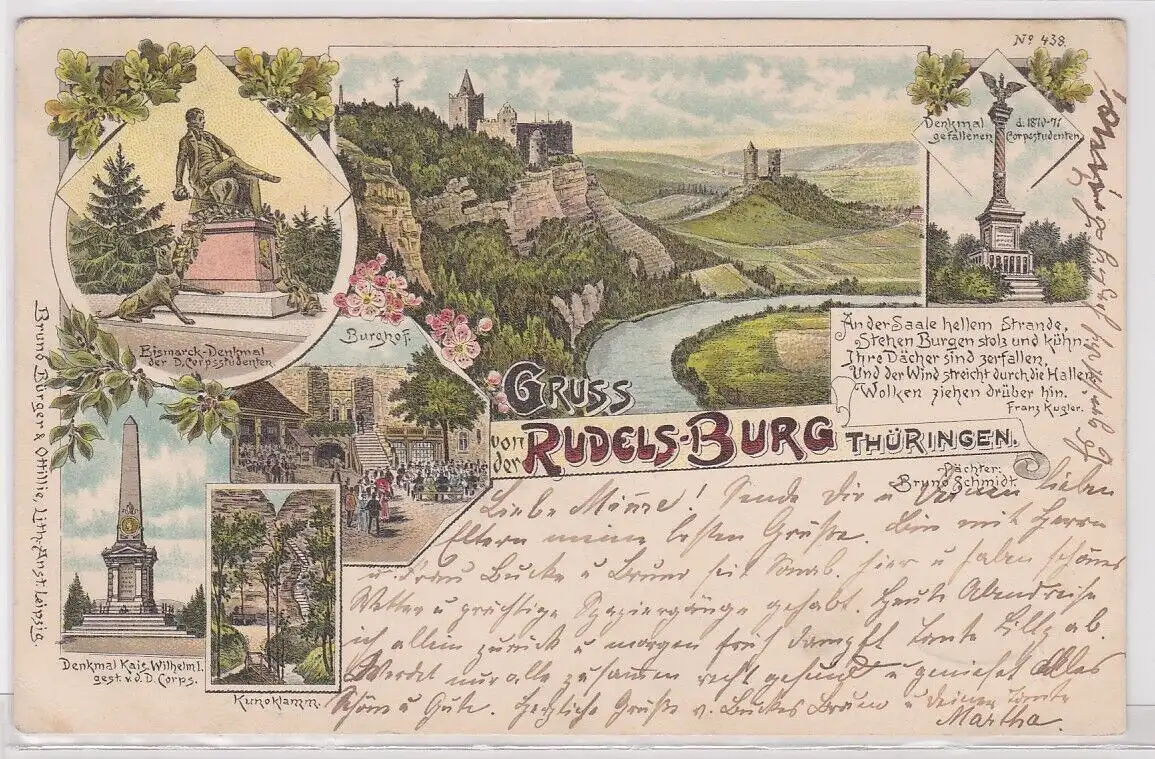 No 438.
Denkmal d. 1870-71
gefallenen Corpsstudenten
Bismarck-Denkmal
der D. Corpsstudenten
Burghof.
An der Saale hellem Strande,
Stehen Burgen stolz und kühn
Ihre Dächer sind zerfallen,
Und der Wind streicht durch die Hallen
Wolken ziehen drüber hin.
Franz Kugler.
GRUSS
von der RUDELS-BURG THÜRINGEN.
Pächter:
Bruno Schmidt.
Denkmal Kais. Wilhelm I.
gest. v. d. D. Corps.
Kunoklamm.
Bruno Bürger & Ottilie, Lith. Anst. Leipzig.
Liebe Mimme! Sende Dir u Deinen lieben
Eltern meine besten Grüße. Bin mit Herrn
u Frau Bucke u Bruno seit Sonab. hier u haben schönes
Wetter u prächtige Spaziergänge gehabt. Heute Abend reise
ich allein zurück u morgen früh dampft Tante Lilly ab.
Werdet nur alle zusammen recht gesund u genießet alles
Schöne u Gute. Herzliche Grüße v. Buckes Bruno u deiner Tante
Martha.